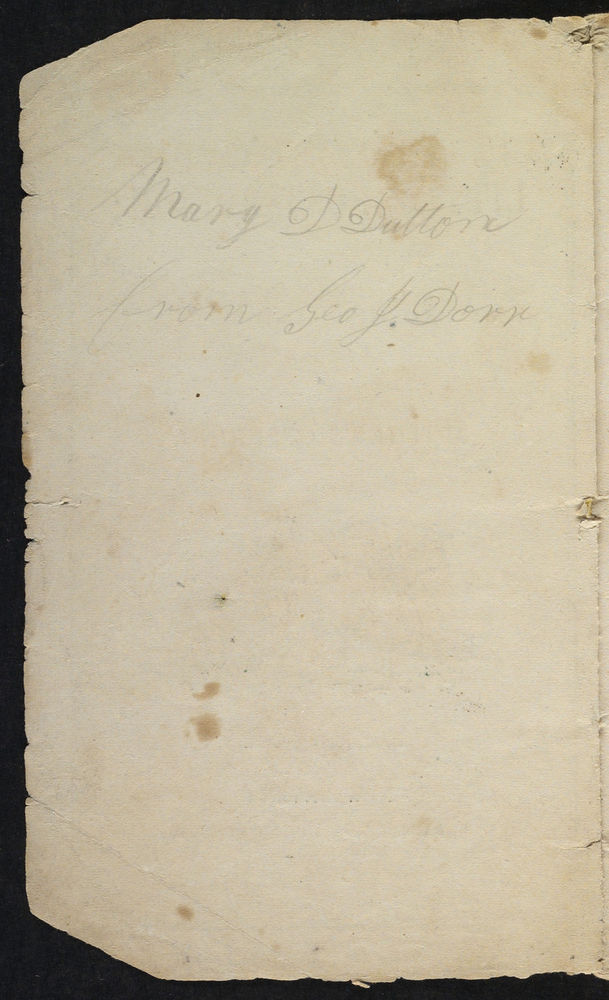 Mary D Dutton
from Geo J. Dorr